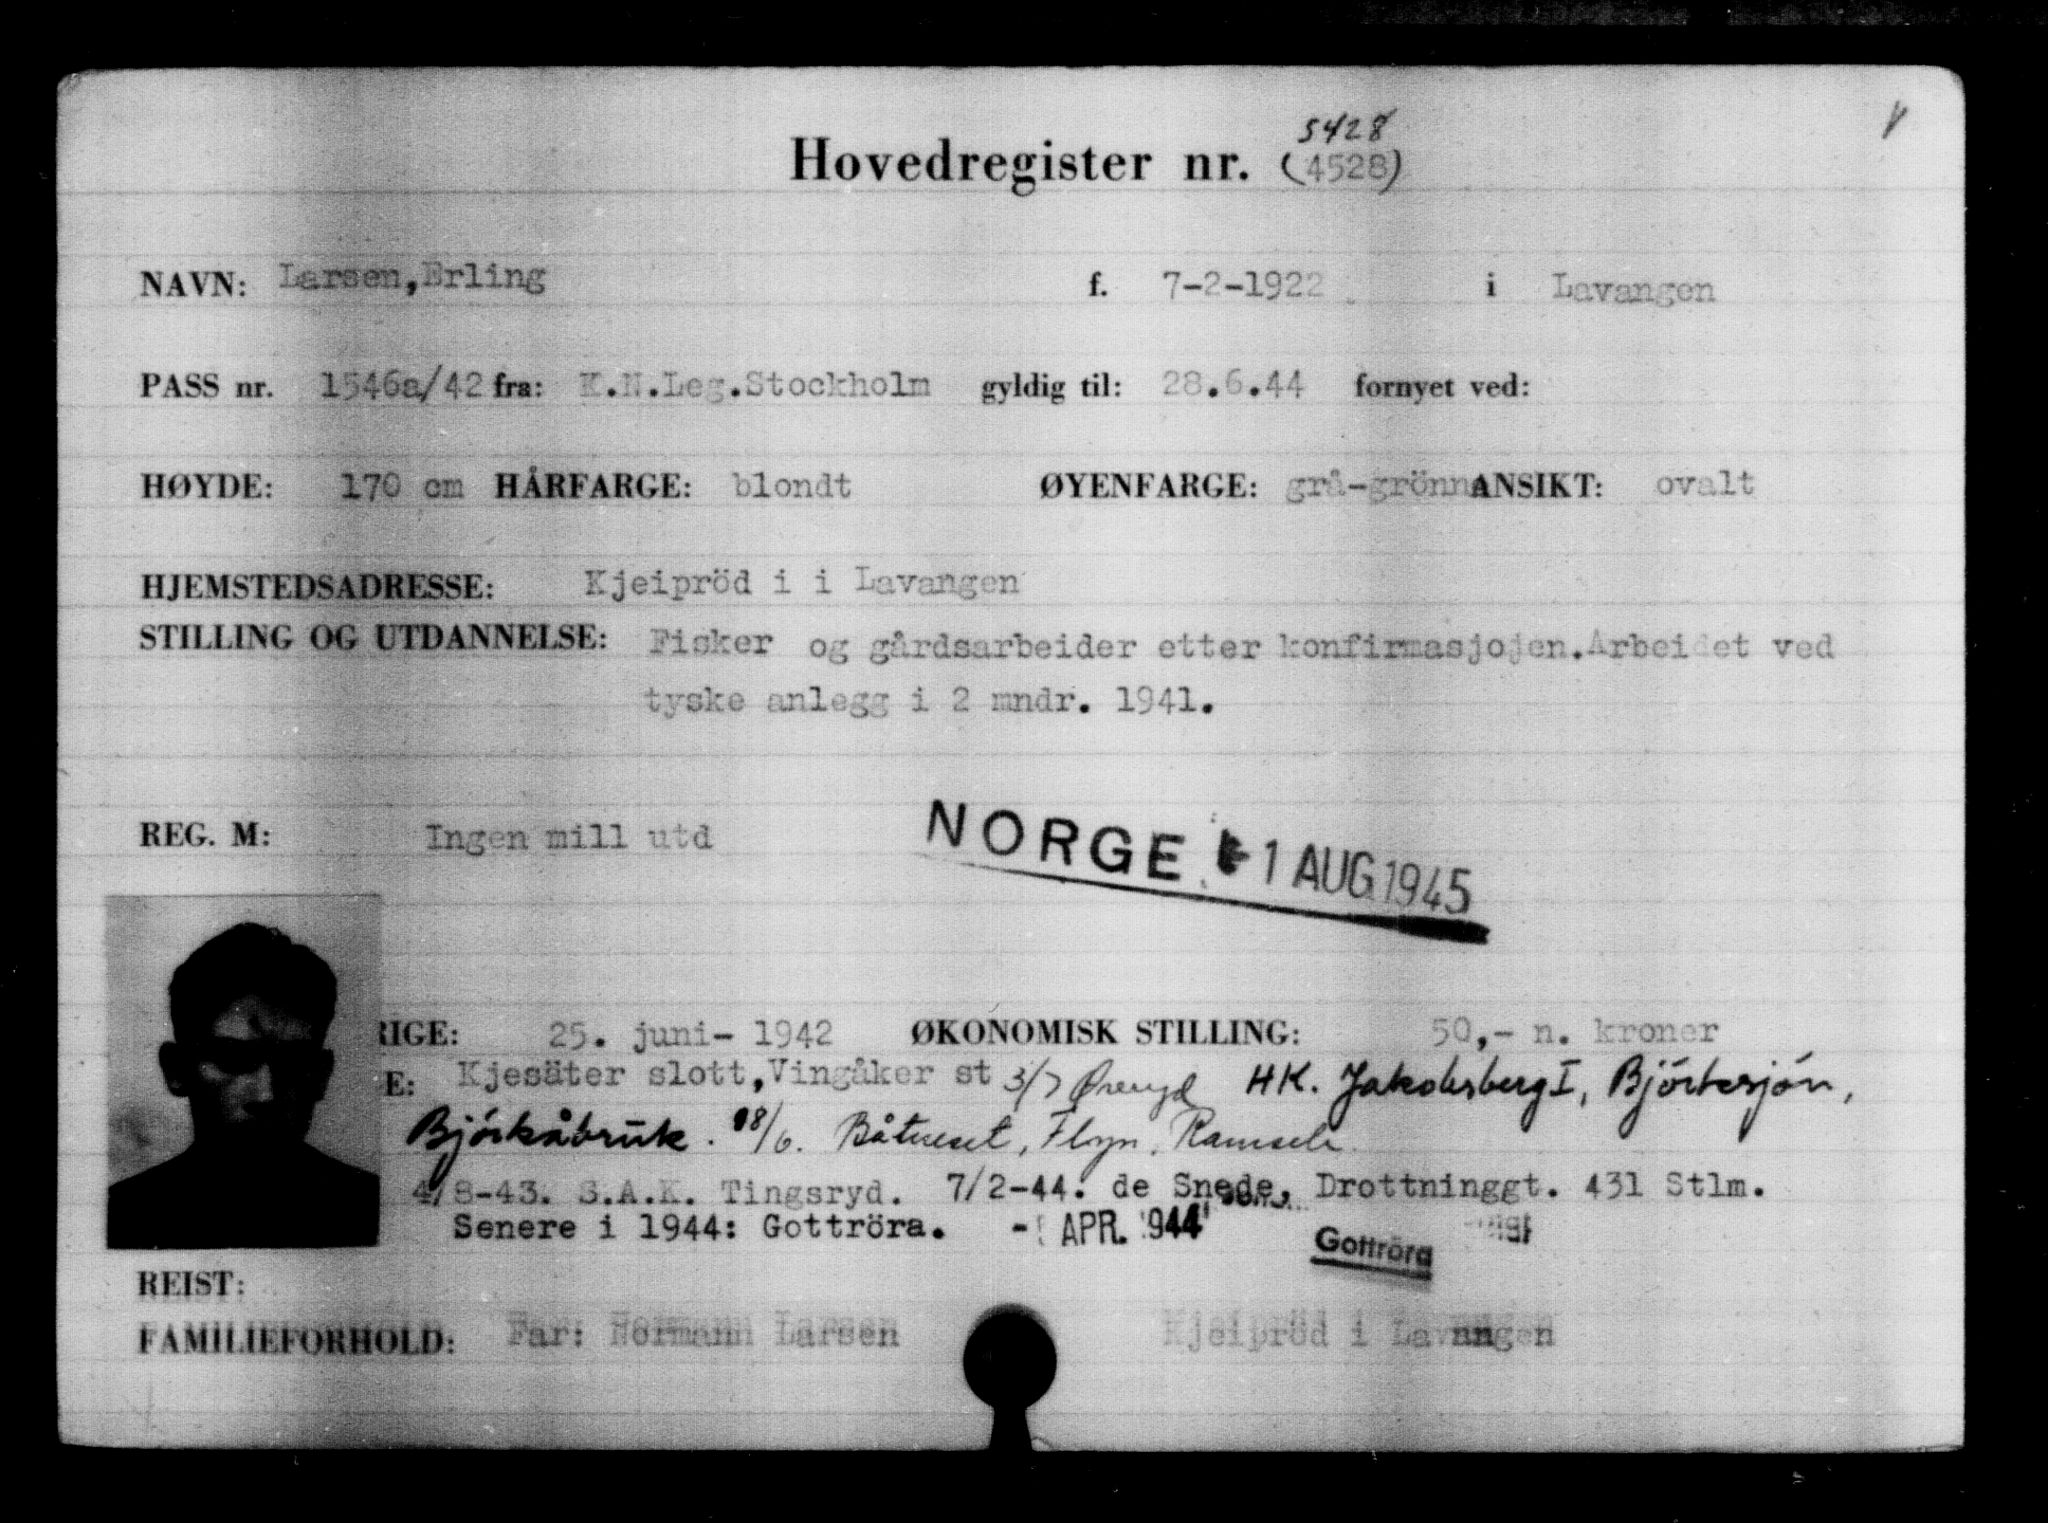 5428
Hovedregister nr. (4528)
NAVN: Larsen,Erling f. 7-2-1922 i Lavangen
PASS nr. 1546a/42 fra: K.N.Leg.Stockholm gyldig til: 28.6.44 fornyet ved:
HØYDE: 170 cm HÅRFARGE: blondt ØYENFARGE: grå-grönn ANSIKT: ovalt
HJEMSTEDSADRESSE: Kjeipröd i i Lavangen
STILLING OG UTDANNELSE: Fisker og gårdsarbeider etter konfirmasjojen.Arbeidet ved
tyske anlegg i 2 mndr. 1941.
REG. M: Ingen mill utd
NORGE 1 AUG 1945
RIGE: 25. juni- 1942 ØKONOMISK STILLING: 50,- n. kroner
E: Kjesäter slott,Vingåker st 3/7 HK. Jakobsberg I, Björkesjön,
Björkåbruk. 18/6. Båtneset, Flyn, Ramsele
4/8-43. S.A.K. Tingsryd. 7/2-44. de Snede, Drottninggt. 431 Stlm.
Senere i 1944: Gottröra. - APR. 1944
Gottröra
REIST:
FAMILIEFORHOLD: Far: Hermann Larsen Kjeipröd i Lavangen